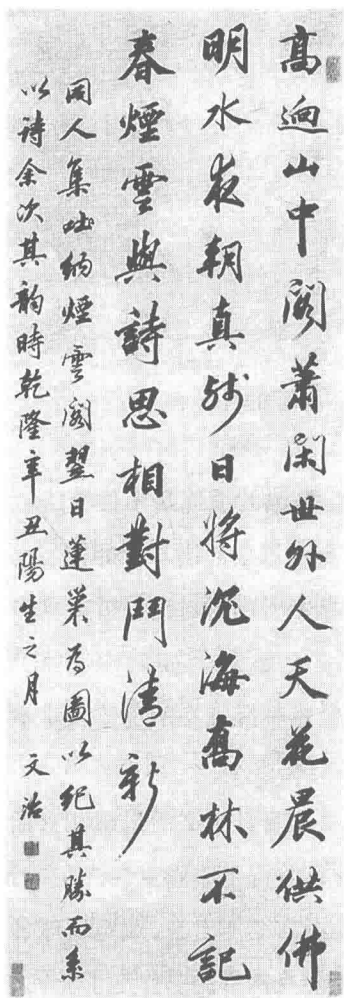 高逈山中閣蕭閑世外人天花晨供佛
明水夜朝真殘日將沉海喬林不記
春煙雲與詩思相對鬥清新
同人集吐納煙雲閣翌日蓮巢為圖以紀其勝而系
以詩余次其韵時乾隆辛丑陽生之月 文治